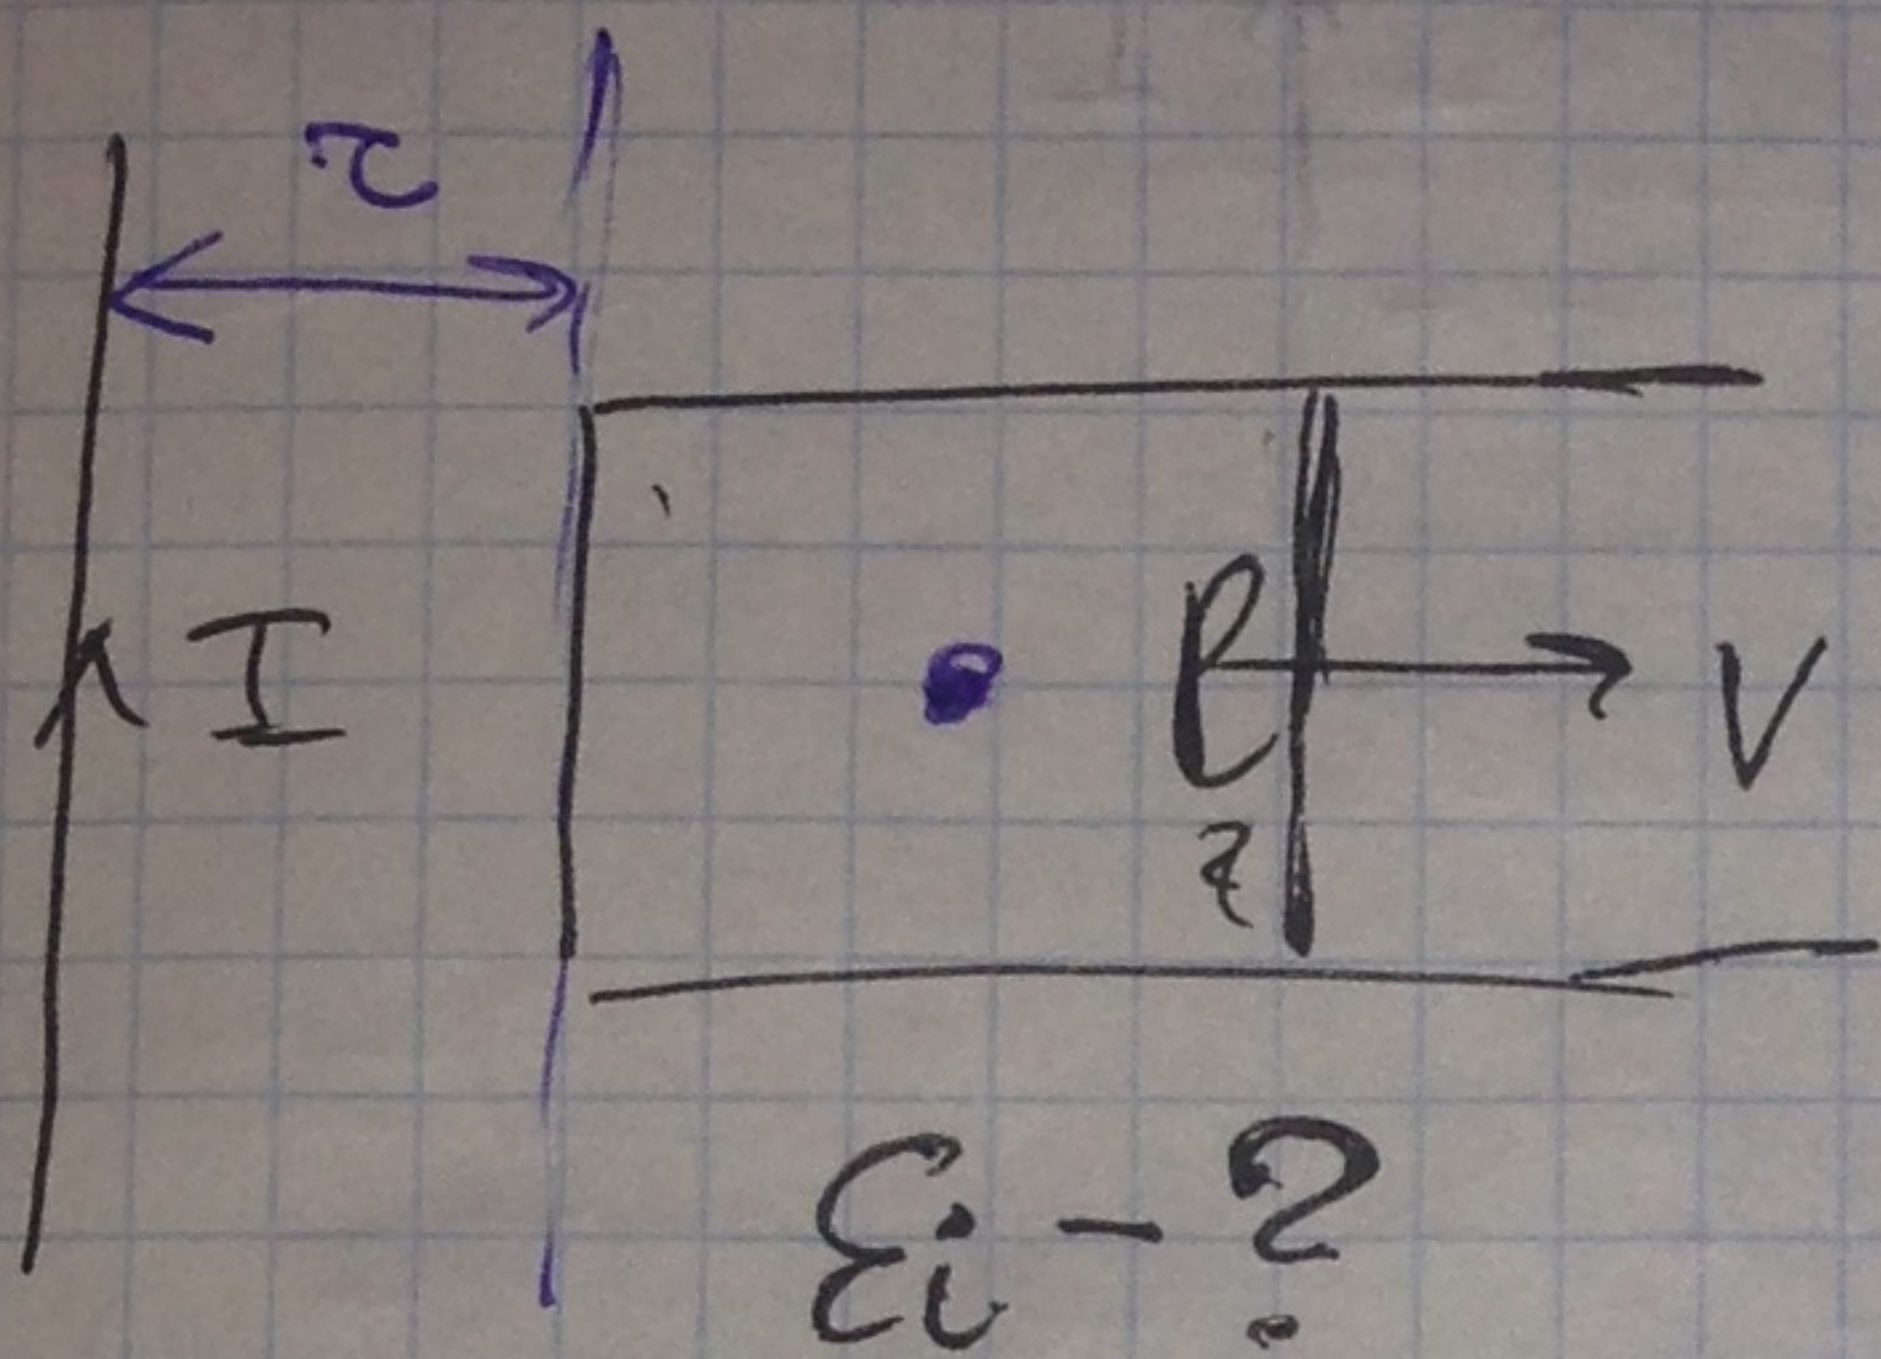 τ
I
ℓ
V
Ɛi - ?